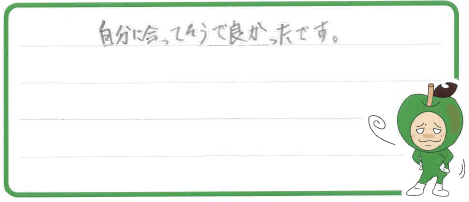 自分に合ってそうで良かったです。